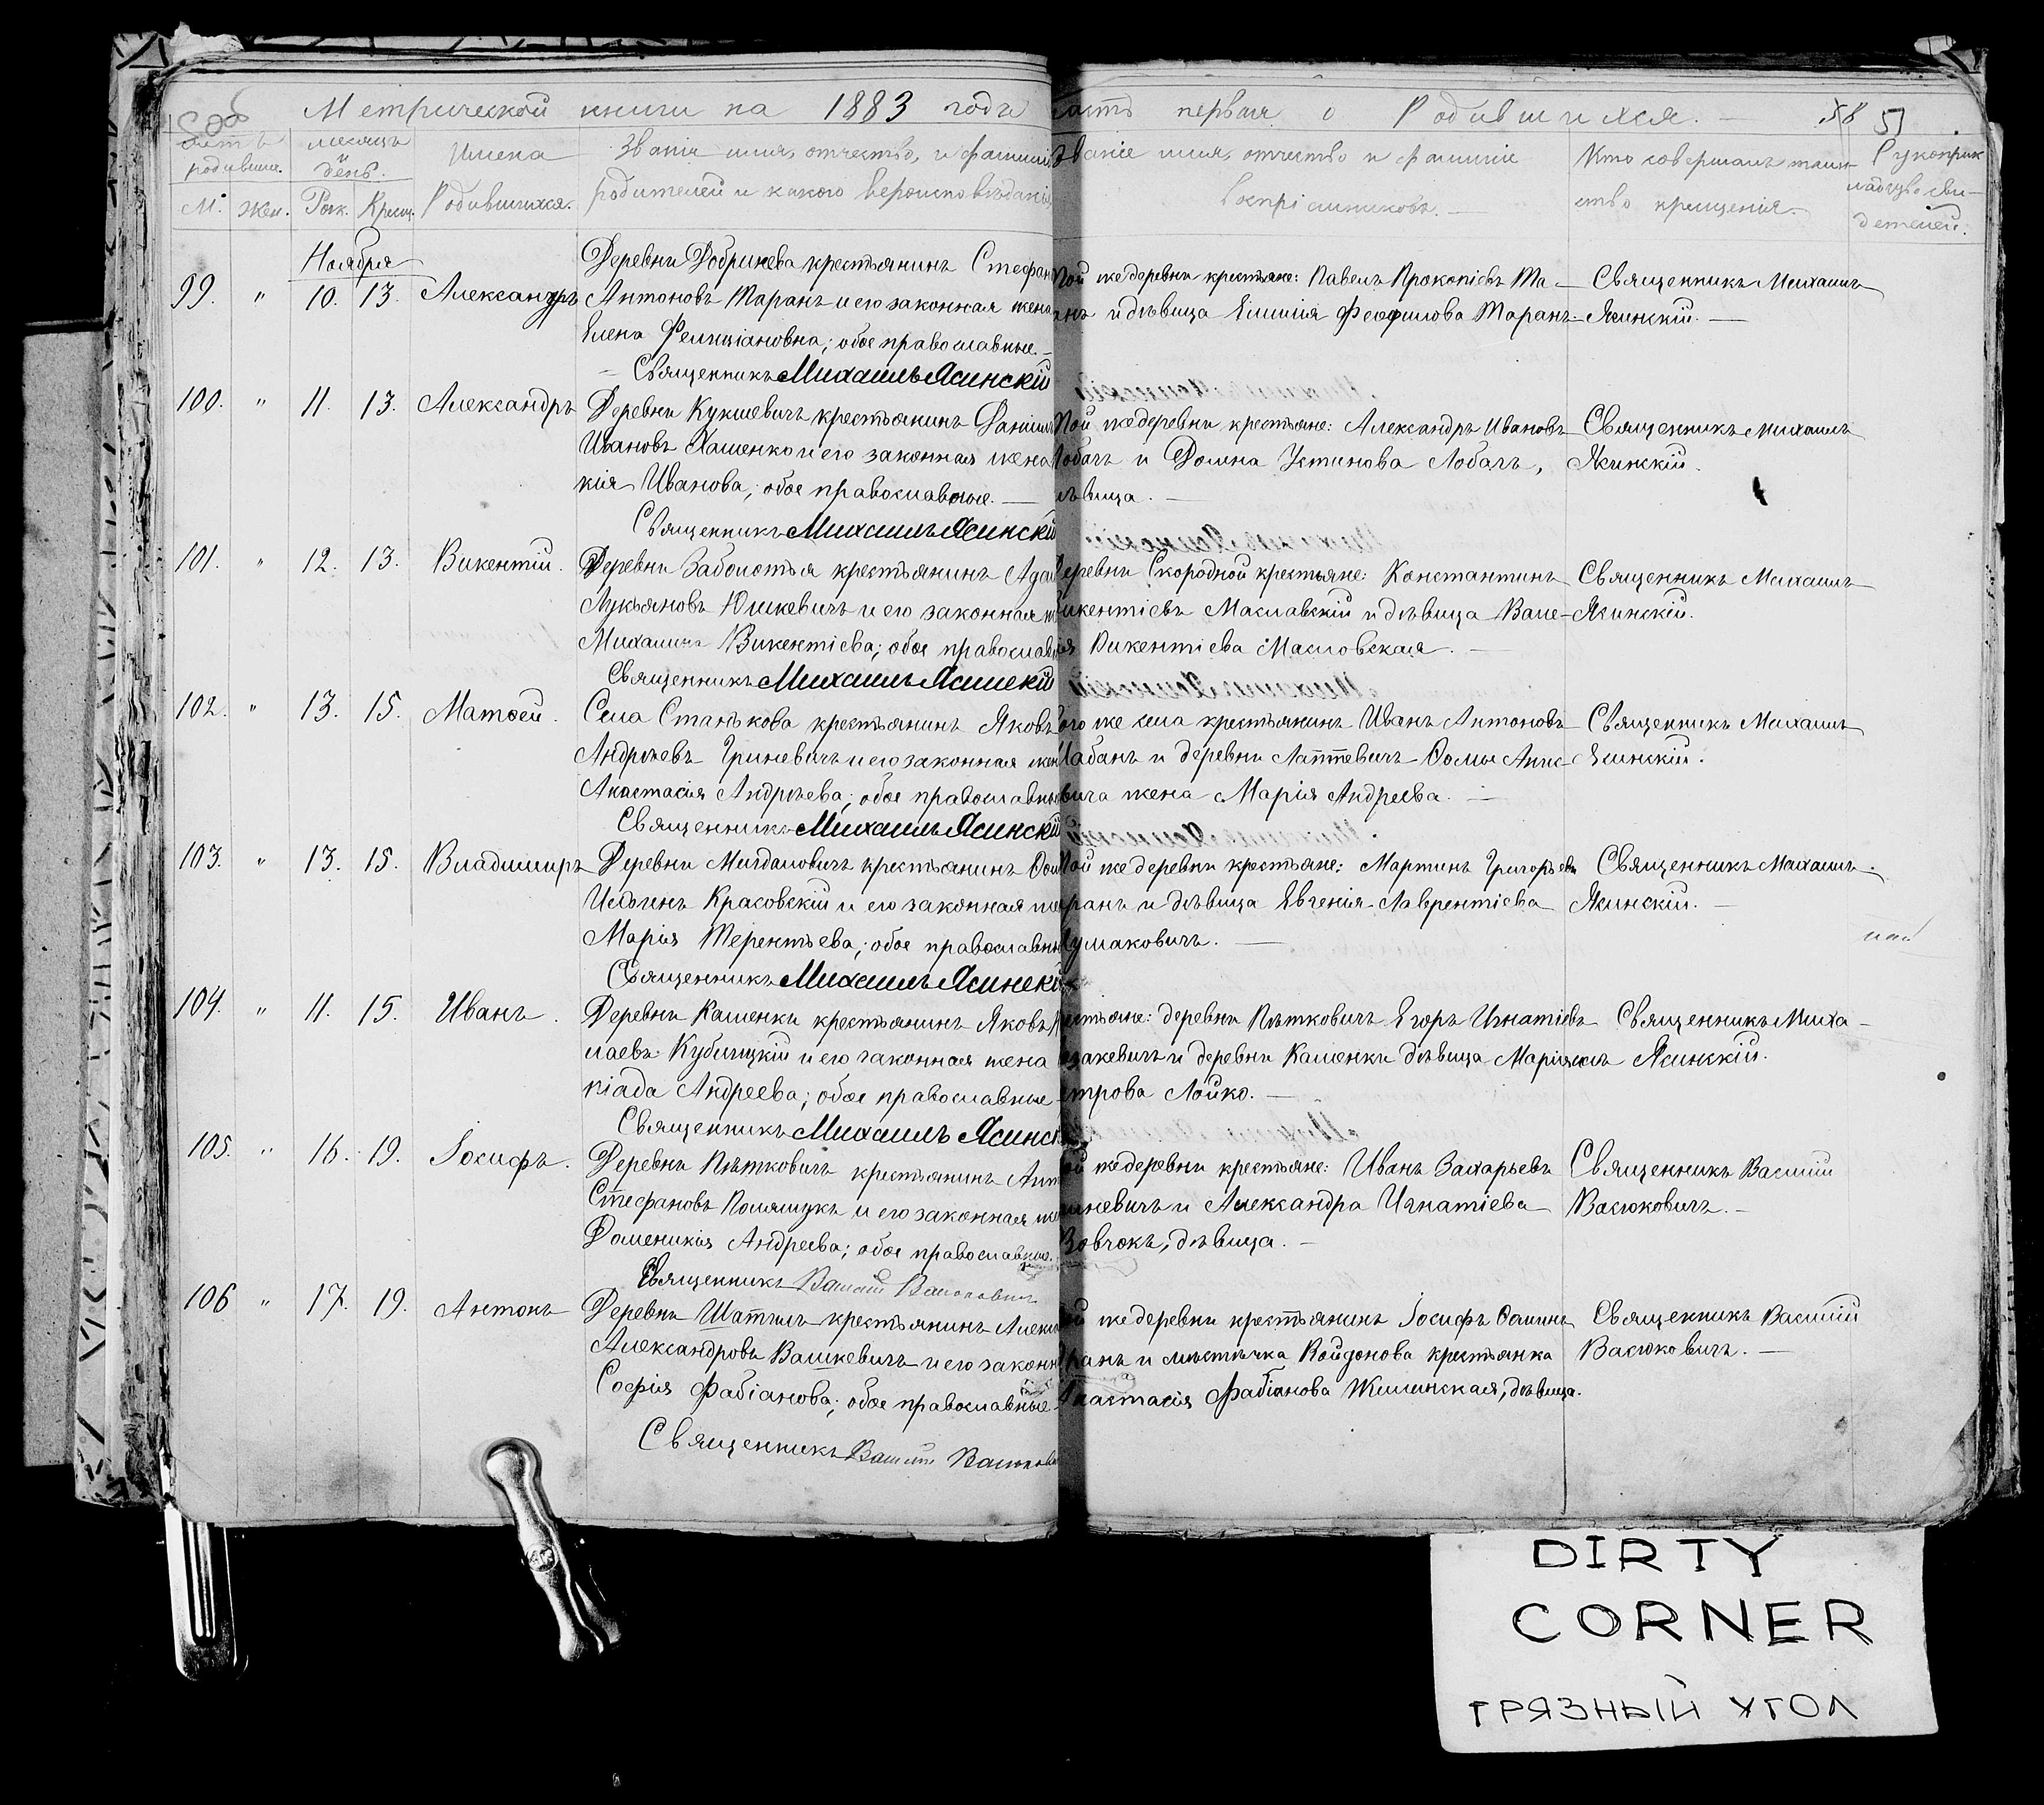 Метрической книги на 1883 годъ
часть первая о Родившихся.
58 51
родивши.
мѣсяцъ и день.
Имена
Званіе имя, отчество, и фамилія
М. Жен. Рож. Крещ. Родившихся.
родителей и какого вероисповѣданія
Званіе имя, отчество и фамилія
Воспріемниковъ.
Кто совершалъ таин-
ство крещенія.
Рукоприк
ладство сви-
детелей.
Ноября
99. " 10. 13. Александръ
Деревни Добринева крестьянинъ Стефанъ
Антоновъ Таранъ и его законная жена
Елена Фелиціановна; обое православные.
Священникъ Михаилъ Ясинскій
Той же деревни крестьяне: Павелъ Прокопіевъ Та-
ранъ и дѣвица Емилія Феофилова Таранъ
Священникъ Михаилъ
Ясинскій.
100. " 11. 13. Александръ
Деревни Кукшевичъ крестьянинъ Даніилъ
Ивановъ Хаменко и его законная жена
кія Иванова; обое православные.
Священникъ Михаилъ Ясинскій
Той же деревни крестьяне: Александръ Ивановъ
Лобачъ и Домна Устинова Лобачъ,
дѣвица.
Священникъ Михаилъ
Ясинскій.
101. " 12. 13. Викентій.
Деревни Заболотья крестьянинъ Адамъ
Лукьяновъ Юшкевичъ и его законная
Михалина Викентіева; обое православ
Священникъ Михаилъ Ясинскій
Деревни Скородной крестьяне: Константинъ
Викентіевъ Маславскій и дѣвица Вале-
рія Викентіева Масловская.
Священникъ Михаилъ
Ясинскій.
102. " 13. 15. Матѳей.
Села Станькова крестьянинъ Яковъ
Андреевъ Гриневичъ и его законная жен
Анастасія Андреева; обое православны
Священникъ Михаилъ Ясинскій
того же села крестьянинъ Иванъ Антоновъ
Чабанъ и деревни Лаптевичъ Ѳомы
жена Марія Андреева.
Священникъ Михаилъ
Ясинскій.
103. " 13. 15. Владимиръ
Деревни Магдаловичъ крестьянинъ
Ильинъ Красовскій и его законная
Марія Терентьева; обое православны
Священникъ Михаилъ Ясинскій
Той же деревни крестьяне: Мартинъ Григорьевъ
Таранъ и дѣвица Евгенія Лаврентіева
Священникъ Михаилъ
Ясинскій.
104. " 11. 15. Иванъ.
Деревни Каменки крестьянинъ Яковъ
лаевъ Кубицкій и его законная жена
піада Андреева; обое православные
Священникъ Михаилъ Ясинск
крестьяне: деревни Пѣтковичъ Егоръ Игнатіевъ
и деревни Каменки дѣвица Марія
Петрова Лойко.
Священникъ Миха-
илъ Ясинскій.
105. " 16. 19. Іосифъ.
Деревни Пѣтковичъ крестьянинъ Ант
Стефановъ Полящукъ и его законная
Доменикія Андреева; обое православные.
Священникъ Василій Васюковичъ
той же деревни крестьяне: Иванъ Захарьевъ
и Александра Игнатіева
Вовчокъ, дѣвица.
Священникъ Василій
Васюковичъ.
106 " 17. 19. Антонъ
Деревни Шатилъ крестьянинъ
Александровъ Вашкевичъ и его законн
Софія Фабіанова; обое православные
Священникъ Василій Васюкови
той же деревни крестьянинъ Іосифъ Ѳоминъ
Таранъ и мѣстечка Койдонова крестьянка
Анастасія Фабіанова Жилинская, дѣвица.
Священникъ Василій
Васюковичъ.
DIRTY
CORNER
ГРЯЗНЫЙ УГОЛ